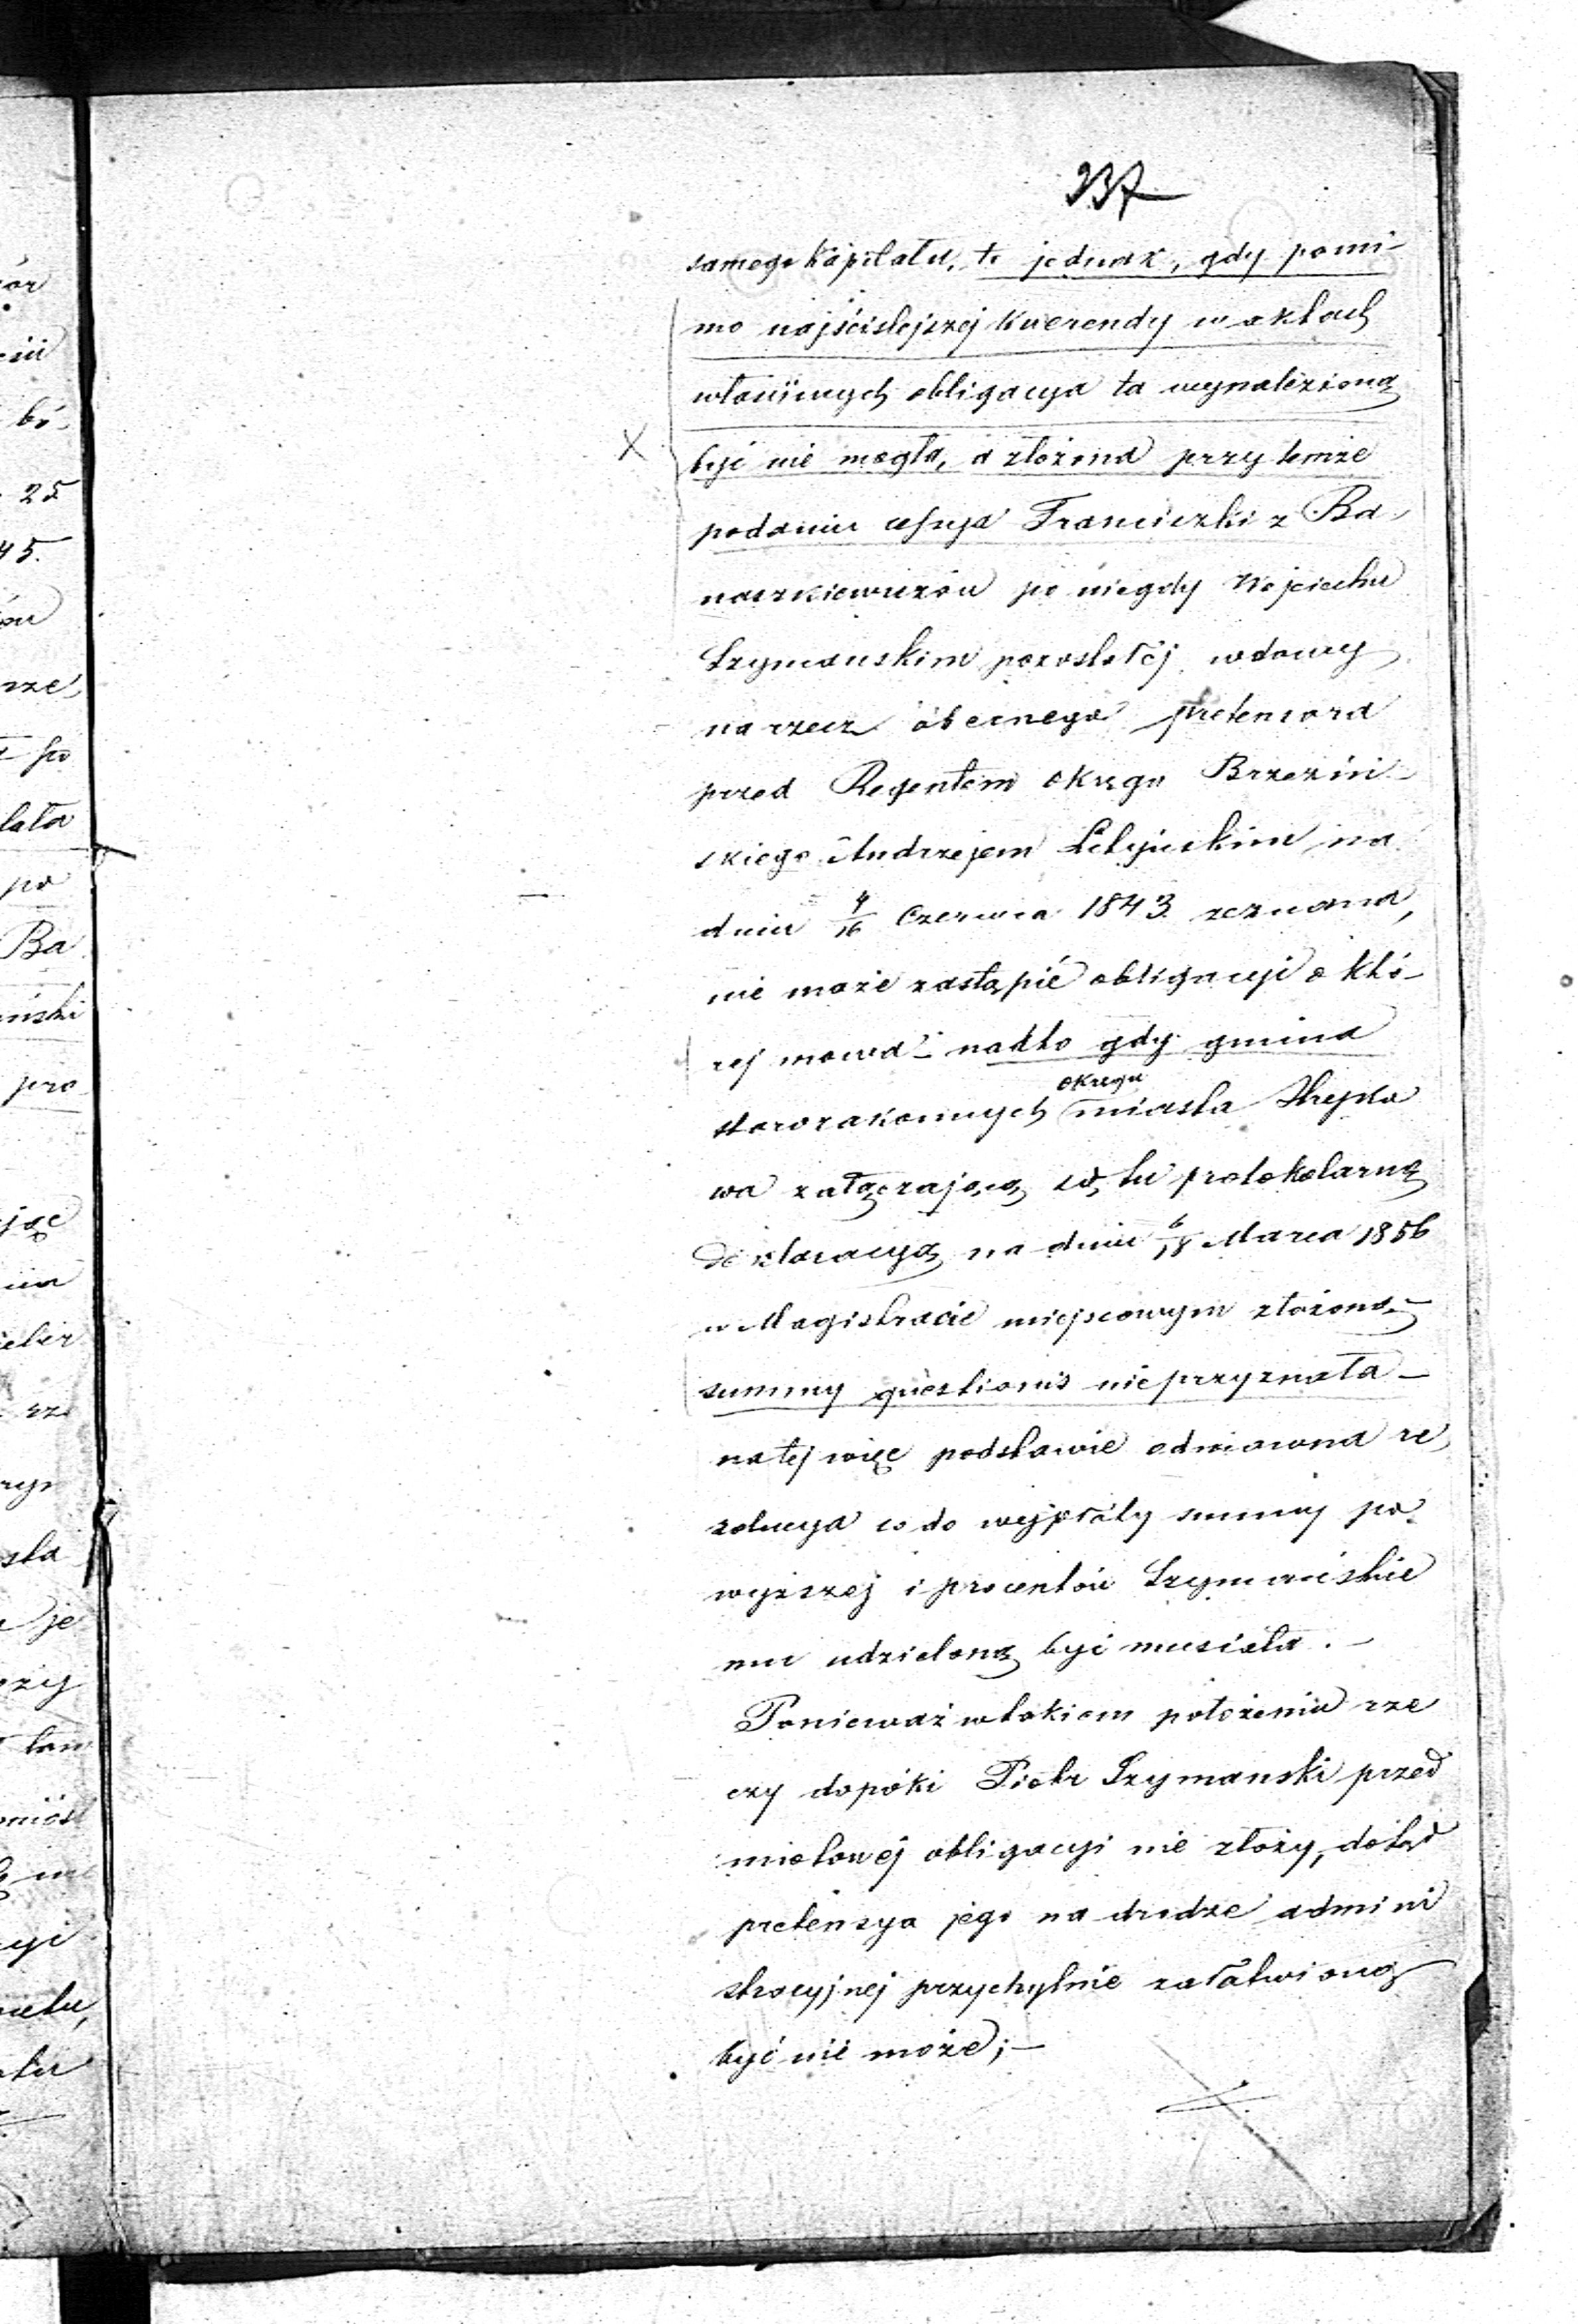 237
samego kapitału, to jednak, gdy pomi-
mo najściślejszej kwerendy w aktach
właściwych obligacya ta wynalezioną
X być nie mogła, a złożona przy temże
podaniu cessya Franciszki z Ba-
naszkiewiczów po niegdy Wojciechu
Szymańskim pozostałej wdowy
na rzecz obecnego pretensora
przed Regentem Okręgu Brzeziń-
skiego Andrzejem na
dniu 4/16 Czerwca 1843 zeznana,
nie może zastąpić obligacyi o któ-
rej mowa – nadto gdy gmina
starozakonnych okręgu miasta Strykо
wa załączającą się tu protokolarną
deklaracyą na dniu 6/18 Marca 1856
w Magistracie miejscowym złożoną –
summy questionis nieprzyznała –
na tej więc podstawie odmowna re-
zolucya co do wypłaty summy po-
wyższej i procentów Szymańskie
mu udzieloną być musiała. –
Ponieważ w takiem położeniu rze
czy dopóki Piotr Szymanski przed
miotowej obligacyi nie złoży, dotąd
pretensya jego na drodze admini
stracyjnej przychylnie załatwioną
być nie może; –
ór
bó-
25
45.
rze
po
łata
po
Ba
iński
pro
jąc
sta
je